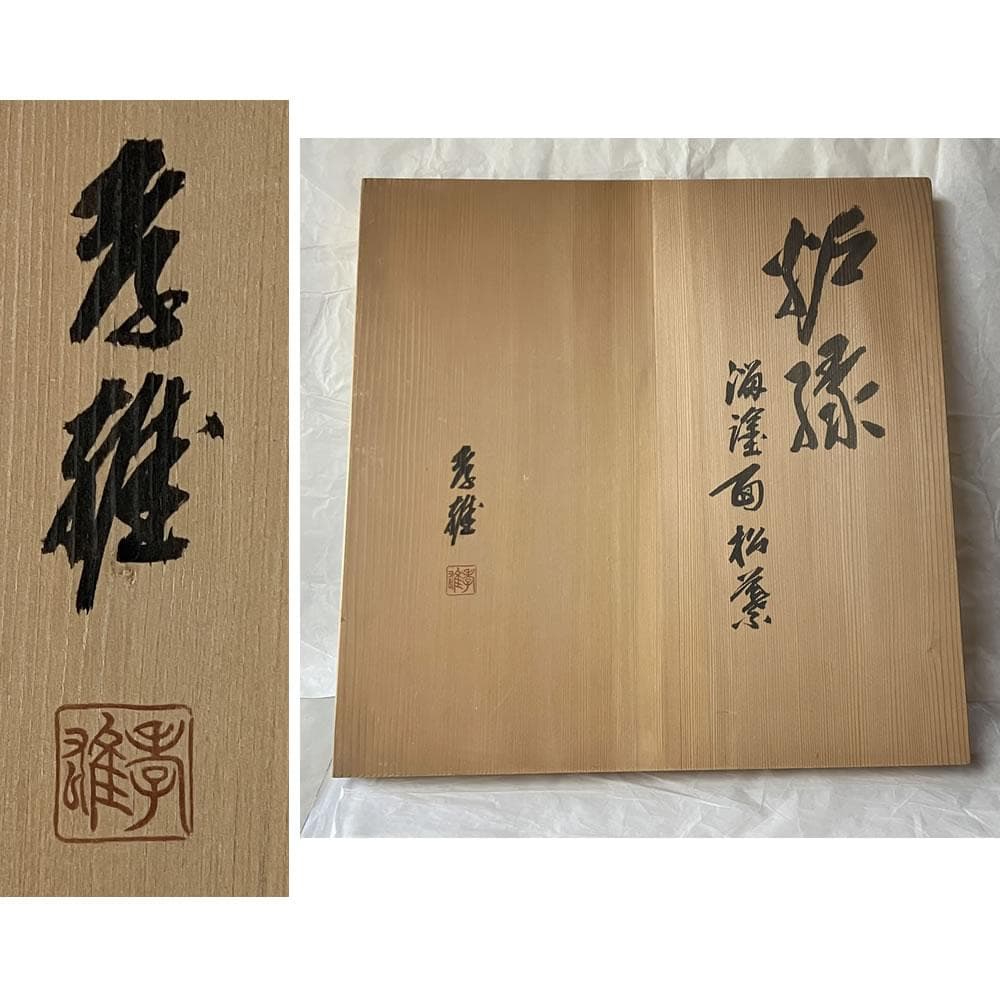 孝雄
孝雄
炉縁
塗面松葉
孝雄
孝雄